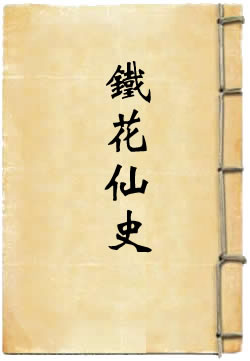 鐵花仙史